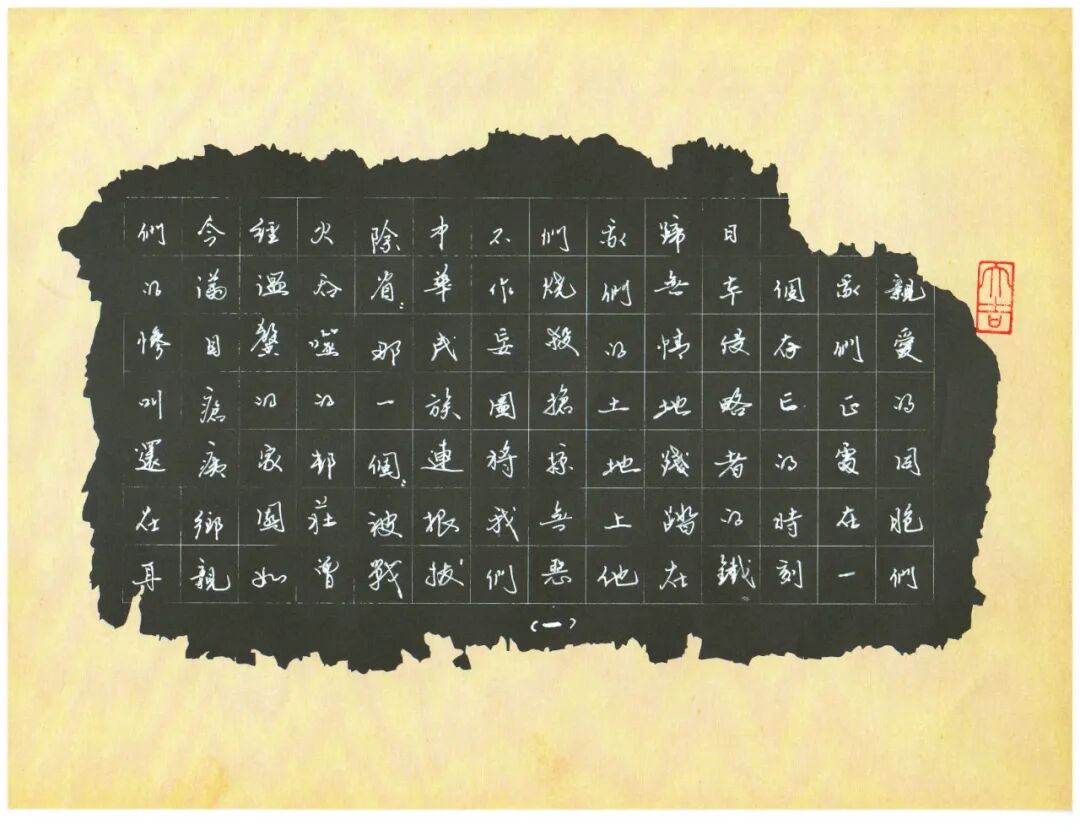 親愛的同胞們
我們正處在一
個存亡的時刻
日本侵略者的鐵
蹄無情地踐踏在
我們的土地上他
們燒殺搶掠無惡
不作妄圖將我們
中華民族連根拔
除看:那一個:被戰
火吞噬的村莊曾
經溫馨的家園如
今滿目瘡痍鄉親
們的慘叫還在耳
(一)
大吉